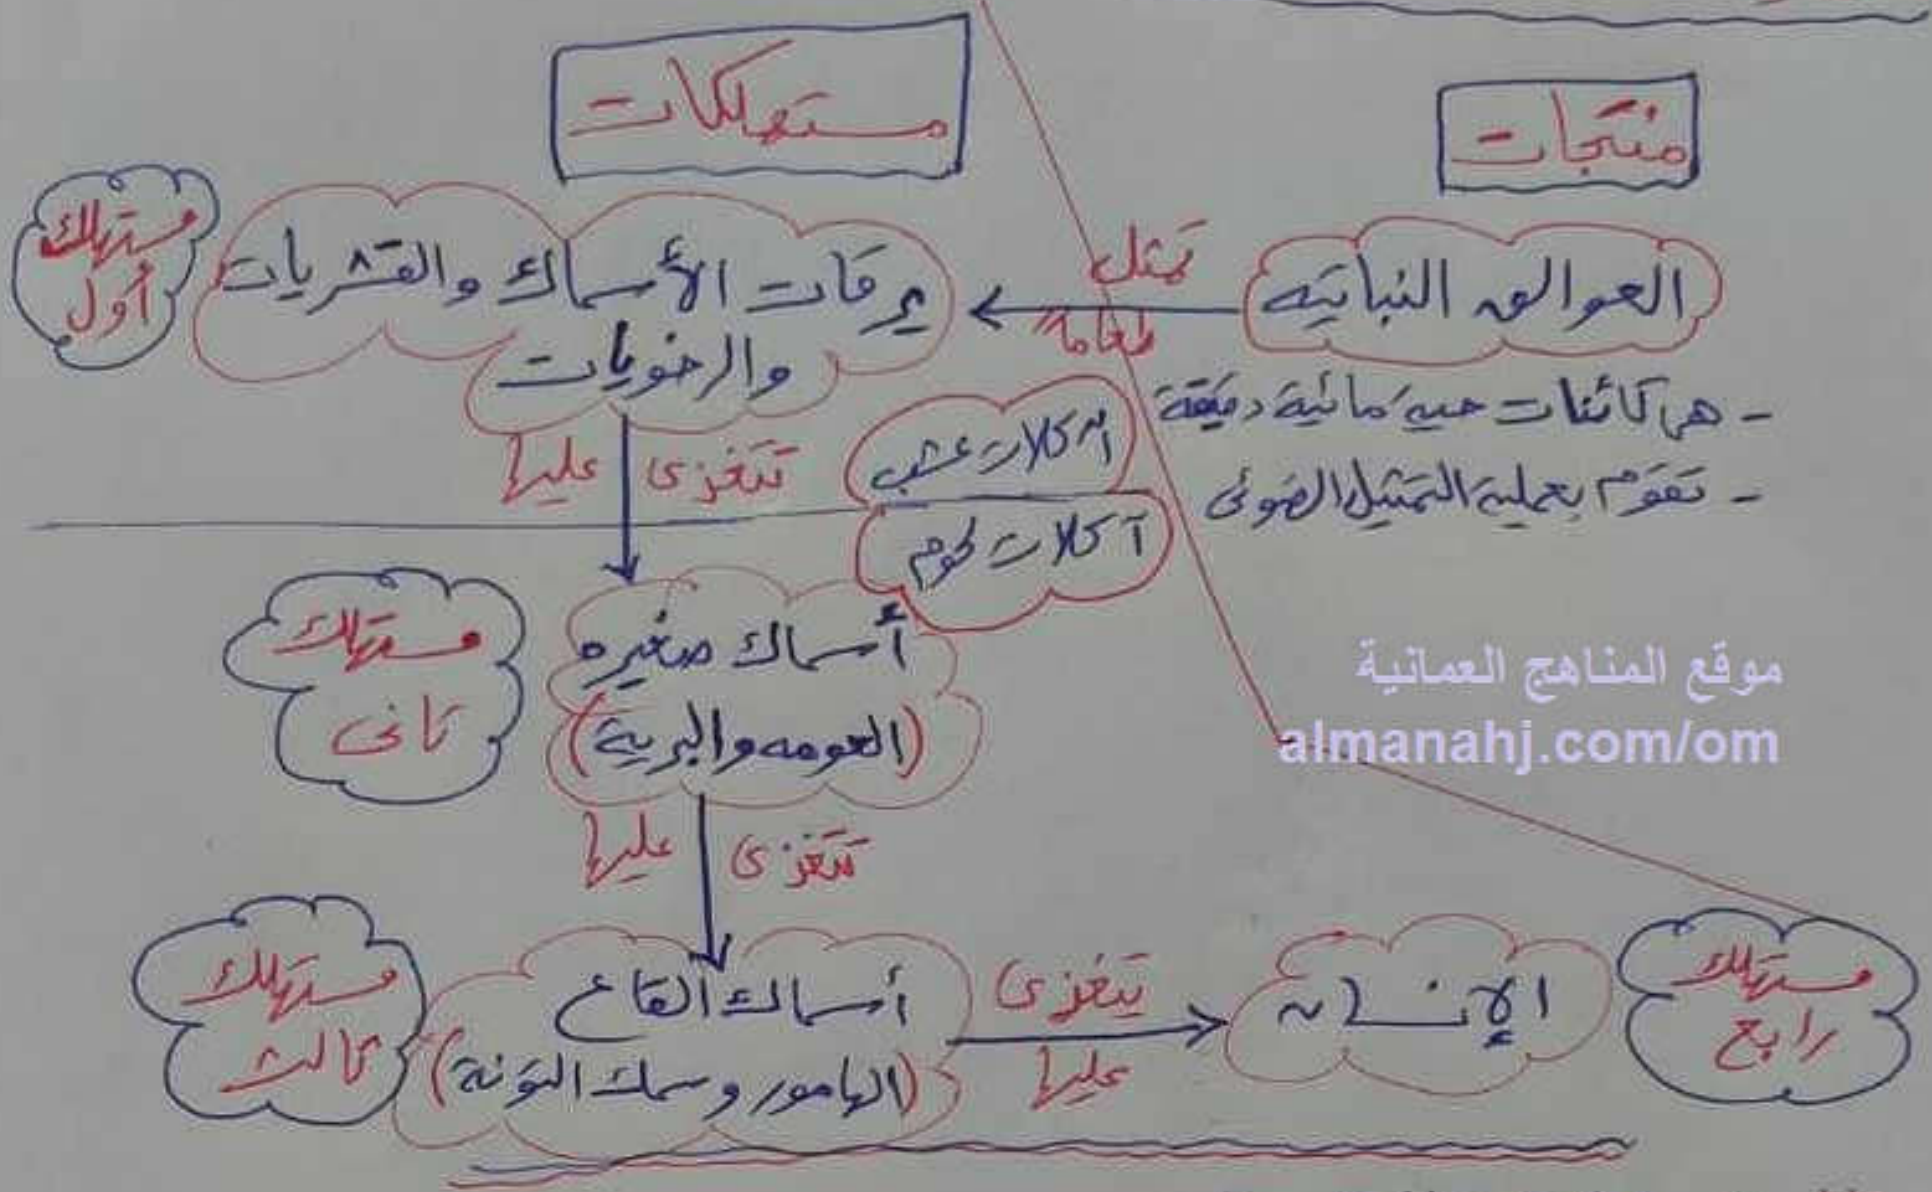 منتجات
مستهلكات
العوالق النباتيه
تمثل
طعاماً
- هى كائنات حيه مائية دقيقة
- تقوم بعملية التمثيل الضوئى
يرقات الأسماك والقشريات
والرخويات
مستهلك
أول
تتغزى عليها
آكلات عشب
آكلات لحوم
أسماك صغيره
(العومه والبريه)
مستهلك
ثانى
تتغزى عليها
أسماك القاع
(الهامور وسمك التونة)
مستهلك
ثالث
يتغزى
عليها
الإنسان
مستهلك
رابع
موقع المناهج العمانية
almanahj.com/om